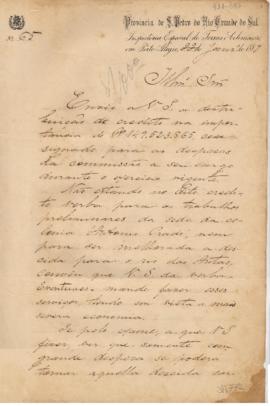 Provincia de S. Pedro do Rio Grande do Sul
Nº 65
Inspectoria Especial de Terras e Colonisação
em Porto Alegre, de de 187
Illmo Snr
Envio a V. S. a destri-
buição de credito na impor-
tancia de Rs 147,523,865 con-
signado para as despezas
da commissão a seu cargo
durante o exercicio vigente.
Não estando no dito credi-
to verba para os trabalhos
preliminares da sede da co-
lonia Antonio Prado, nem
para ser melhorada a des-
cida para o rio das Antas,
convém que V. S. da verba
Eventuaes mande fazer esses
serviços, tendo em vista a mais
severa economia.
Se pelo exame, a que V. S.
fizer, ver que somente com
grande despeza se poderá
tornar aquella descida